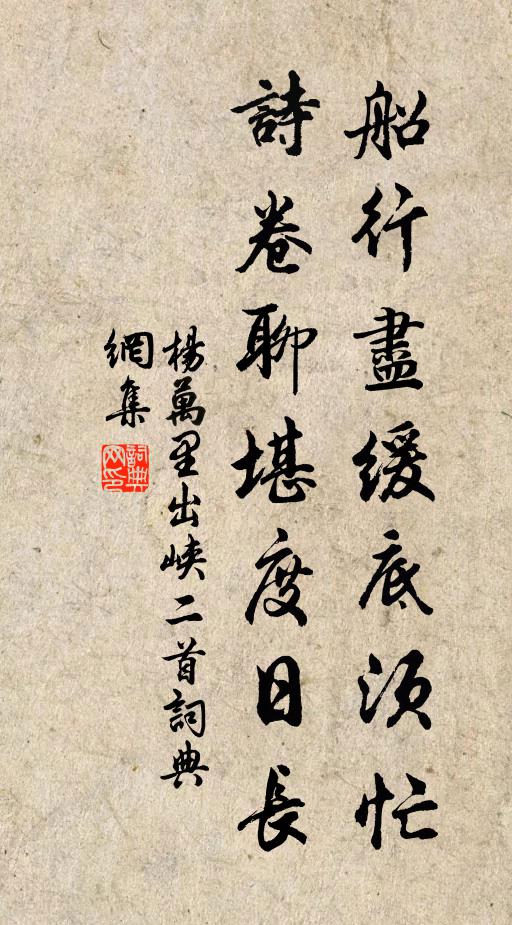 船行盡緩底須忙
詩卷聊堪度日長
楊萬里出峽二首詞典
網集
詞典
网印